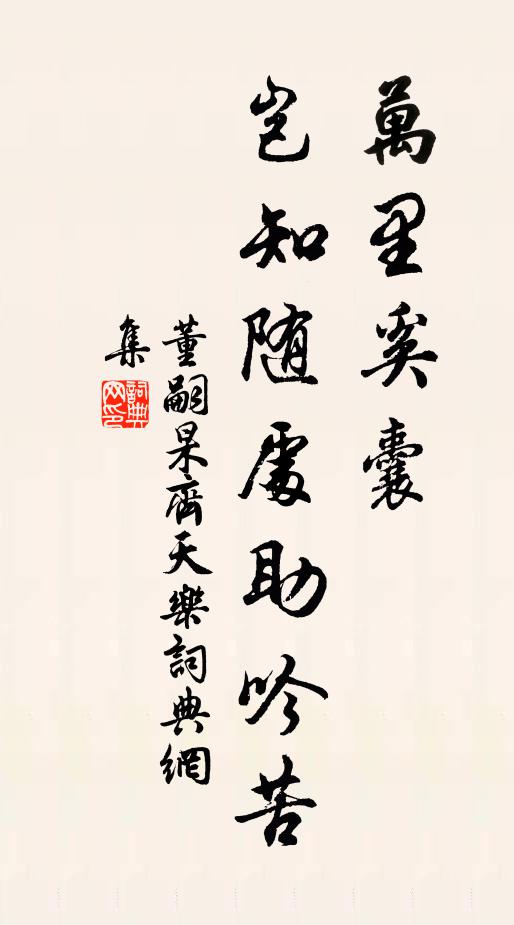 萬里奚囊
豈知随處助吟苦
董嗣杲齊天樂詞典網
集
詞典
网印